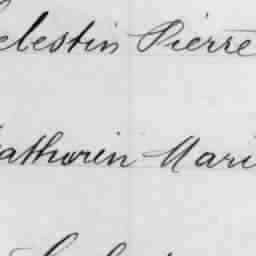 elestin Pierre
athurin Mari